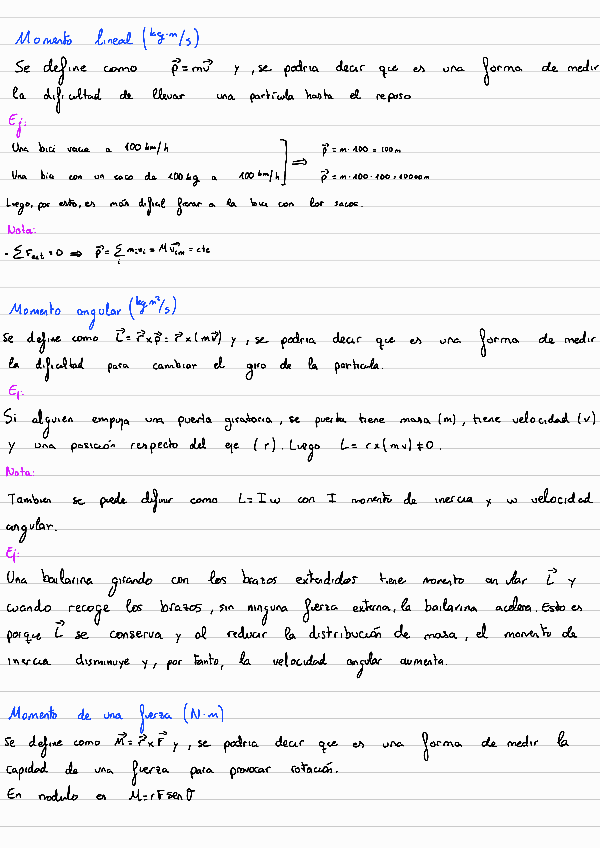 Momento lineal (kg·m/s)
Se define como p⃗=mv⃗ y, se podria decir que es una forma de medir
la dificultad de llevar una particula hasta el reposo
Ej:
Una bici vacia a 100 km/h ⇒ p⃗ = m·100 = 100m
Una bici con un saco de 100kg a 100 km/h p⃗ = m·100·100 = 10000m
Luego, por esto, es más dificil frenar a la bici con los sacos.
Nota:
- ∑Fext = 0 ⇒ p⃗ = ∑i mivi = M v⃗cm = cte
Momento angular (kg·m²/s)
Se define como L⃗ = r⃗ x p⃗ = r⃗ x (mv⃗) y, se podria decir que es una forma de medir
la dificultad para cambiar el giro de la particula.
Ej:
Si alguien empuja una puerta giratoria, se puerta tiene masa (m), tiene velocidad (v)
y una posición respecto del eje (r). Luego L = r x (mv) ≠ 0.
Nota:
Tambien se puede definir como L = I w con I momento de inercia y w velocidad
angular.
Ej:
Una bailarina girando con los brazos extendidos tiene momento an ular L⃗ y
cuando recoge los brazos, sin ninguna fuerza externa, la bailarina acelera. Esto es
porque L⃗ se conserva y al reducir la distribución de masa, el momento de
inercia disminuye y, por tanto, la velocidad angular aumenta.
Momento de una fuerza (N·m)
Se define como M⃗ = r⃗ x F⃗ y, se podria decir que es una forma de medir la
capidad de una fuerza para provocar rotación.
En modulo es M = rF sen θ